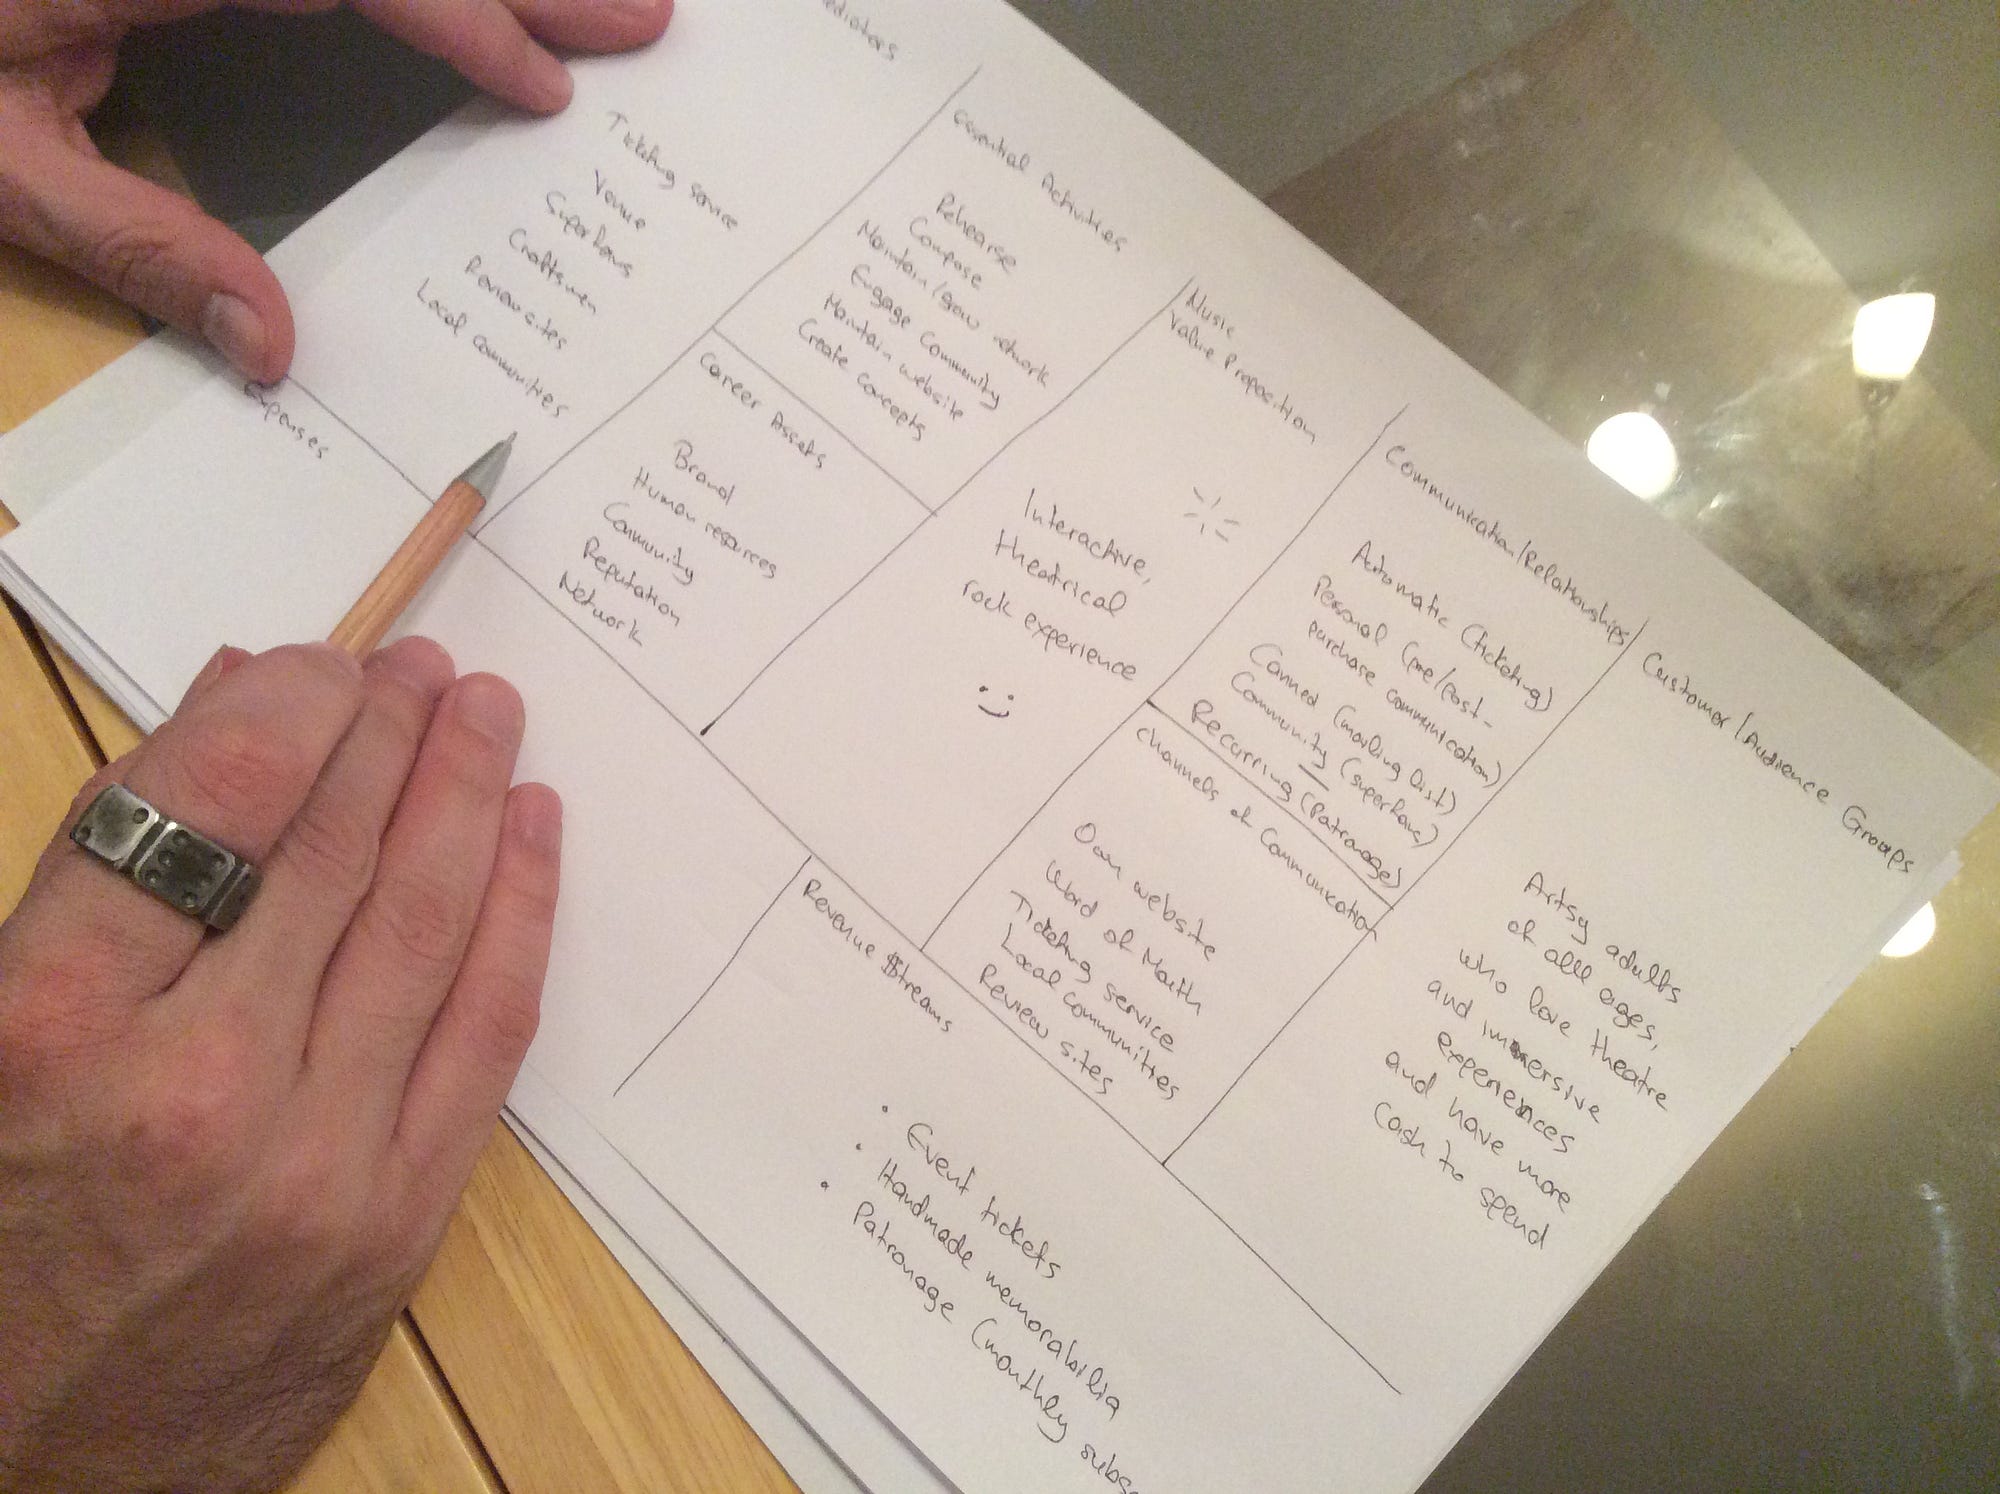 Ticketing service
Venue
Superfans
Craftsmen
Review sites
Local communities
Essential Activities
Rehearse
Compose
Maintain/grow network
Engage Community
Maintain website
Create concepts
Career Assets
Brand
Human resources
Community
Reputation
Network
Music
Value Proposition
Interactive,
theatrical
rock experience
Communication/Relationships
Automatic (ticketing)
Personal (pre/post-
purchase communication)
Canned (mailing list)
Community (superfans)
Recurring (Patronage)
Channels of Communication
Own website
Word of Mouth
Ticketing service
Local communities
Review sites
Customer/Audience Groups
Artsy adults
of alll ages,
who love theatre
and immersive
experiences
and have more
cash to spend
Expenses
Revenue $treams
• Event tickets
• Handmade memorabilia
• Patronage (monthly subsc